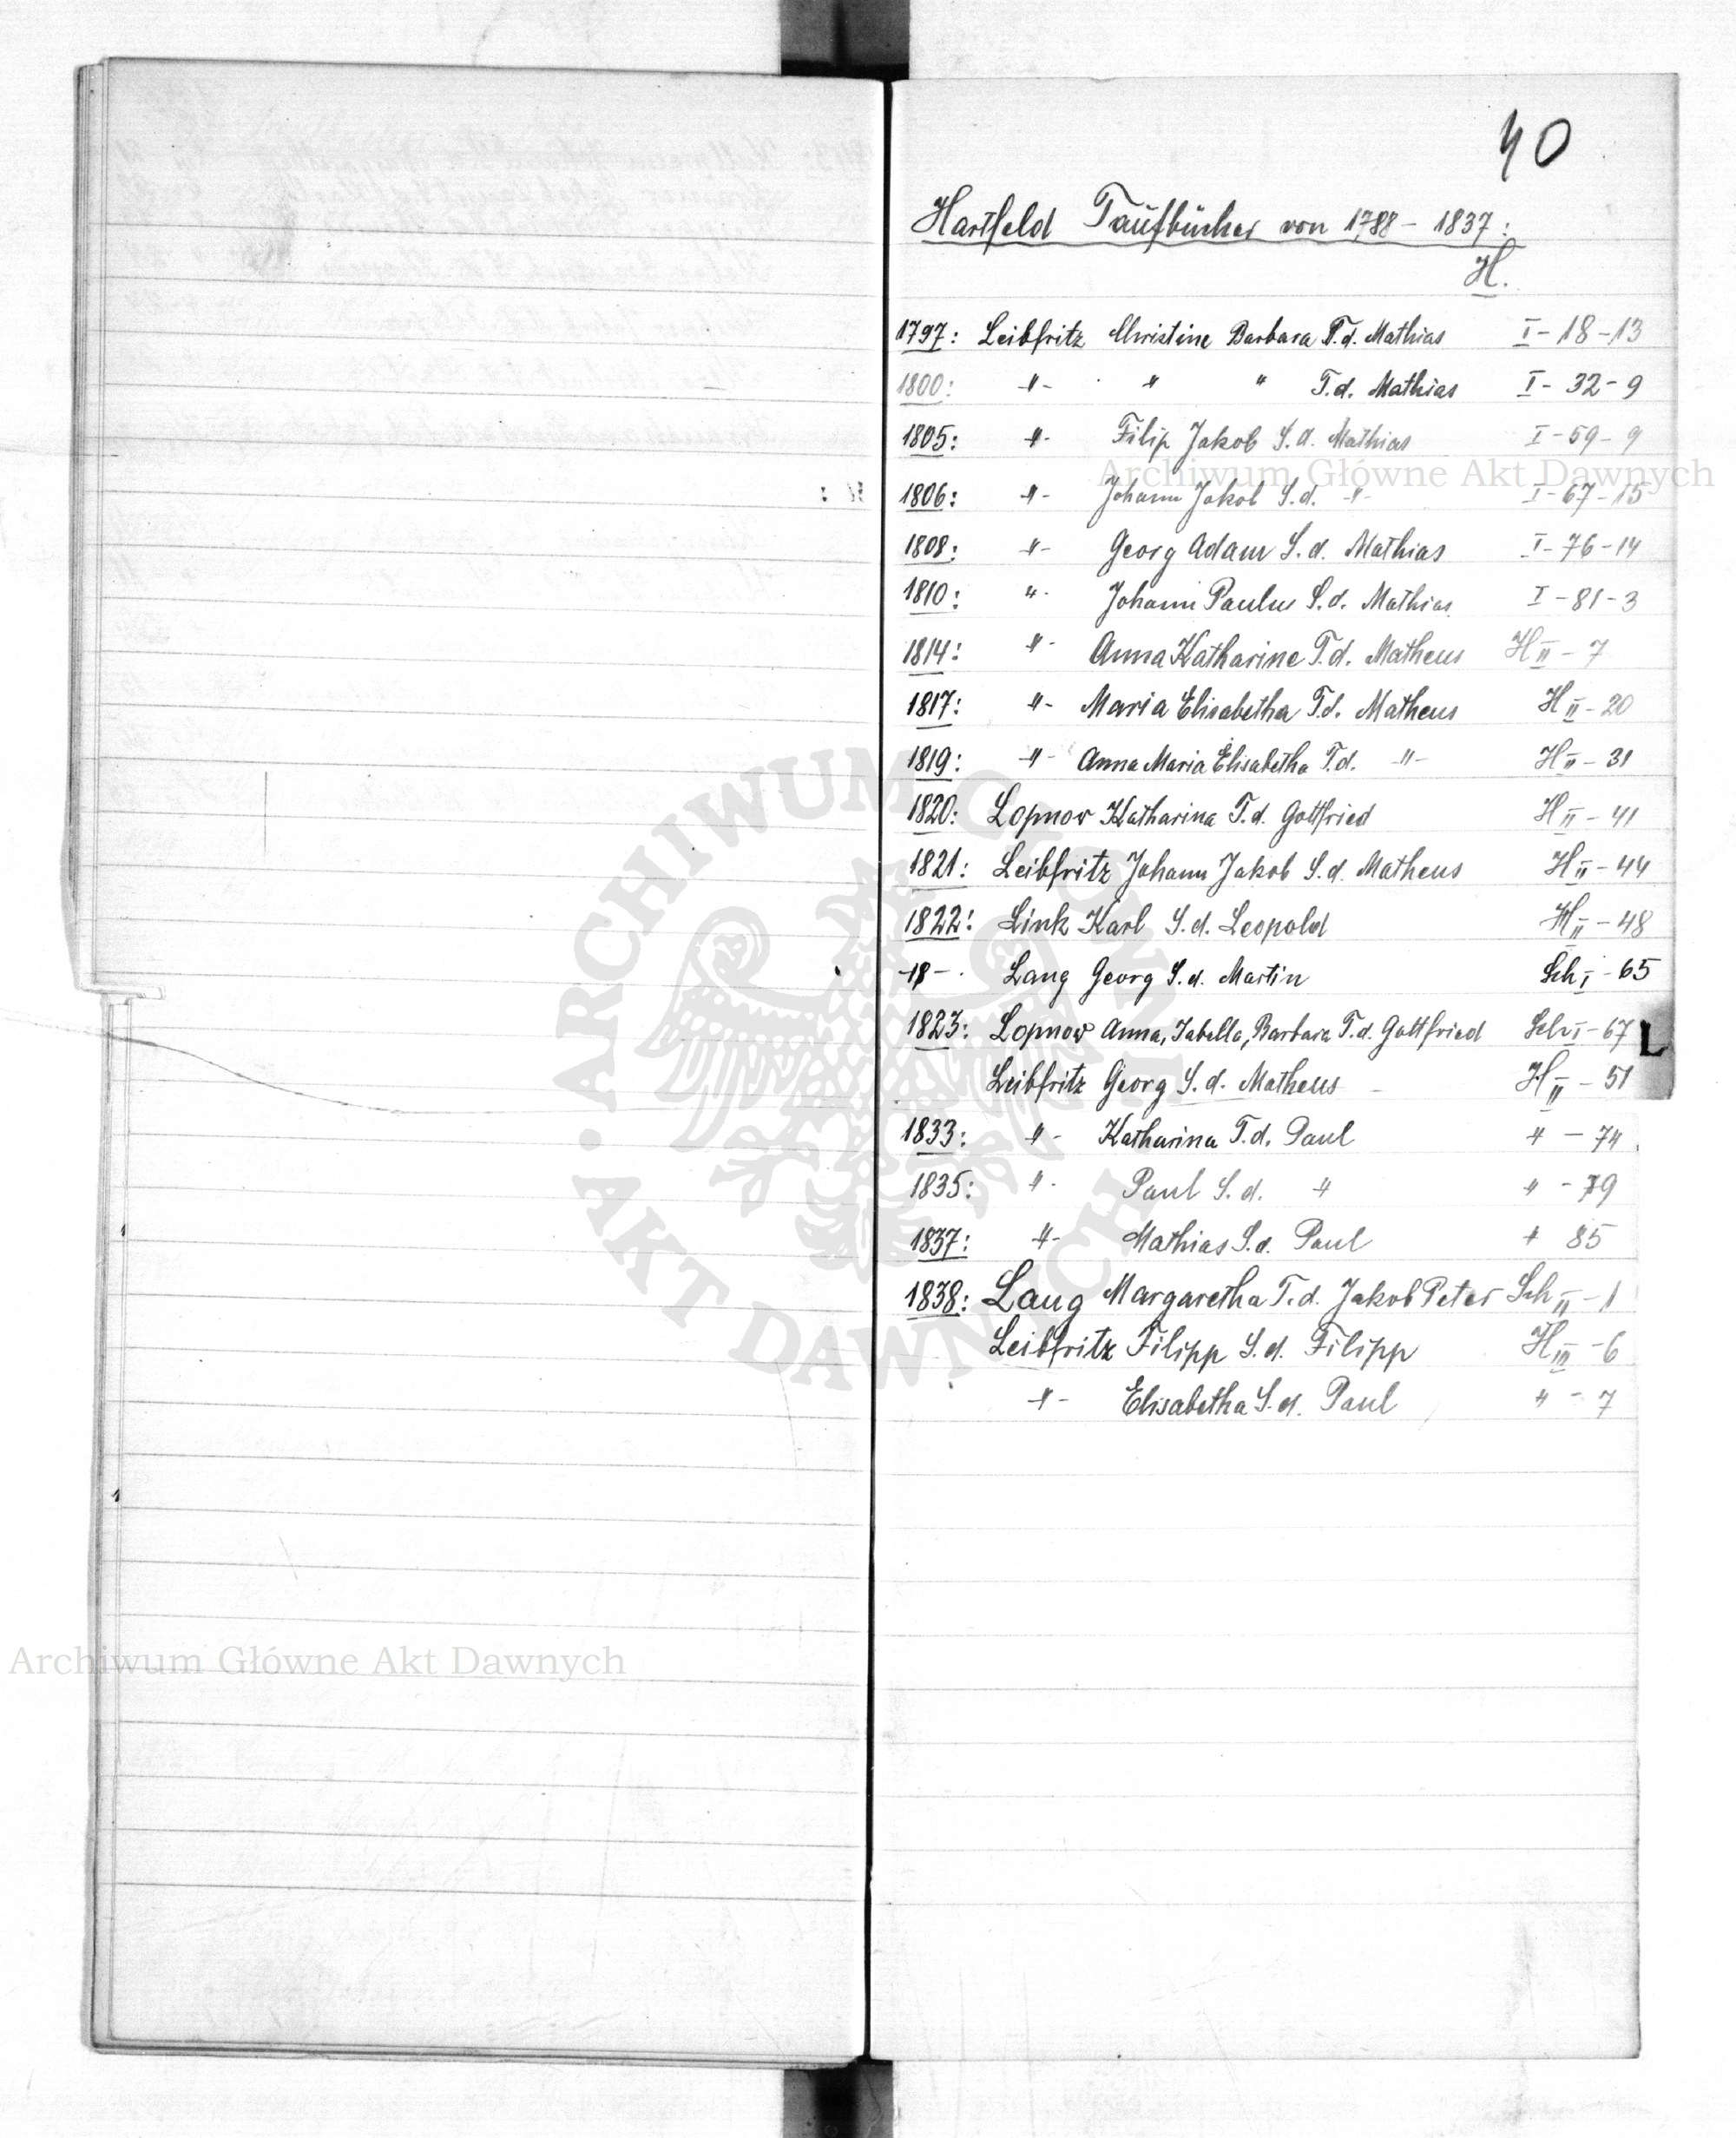 40
Hartfeld Taufbücher von 1788 – 1837:
H.
1797: Leibfritz Christine Barbara T.d. Mathias I-18-13
1800: -"- " " T.d. Mathias I-32-9
1805: -"- Filip Jakob S.d. Mathias I-59-9
Archiwum Główne Akt Dawnych
1806: -"- Johann Jakob S.d. -"- I-67-15
1808: -"- Georg Adam S.d. Mathias I-76-14
1810: "- Johann Paulus S.d. Mathias I-81-3
1814: "- Anna Katharine T.d. Matheus H II-7
1817: "- Maria Elisabetha T.d. Matheus H II-20
1819: -"- Anna Maria Elisabetha T.d. -"- H II-31
1820: Lopnow Katharina T.d. Gottfried H II-41
1821: Leibfritz Johann Jakob S.d. Matheus H II-44
1822: Link Karl S.d. Leopold H II-48
-"- Lang Georg S.d. Martin Sch I-65
1823: Lopnow Anna, Isabella, Barbara T.d. Gottfried Sch I-67
L
Leibfritz Georg S.d. Matheus H II-51
1833: "- Katharina T.d. Paul " - 74
1835: "- Paul S.d. " " - 79
1837: "- Mathias S.d. Paul " 85
1838: Lang Margaretha T.d. Jakob Peter Sch II-1
Leibfritz Filipp S.d. Filipp H III-6
-"- Elisabetha S.d. Paul " - 7
ARCHIWUM GŁÓWNE AKT DAWNYCH
Archiwum Główne Akt Dawnych